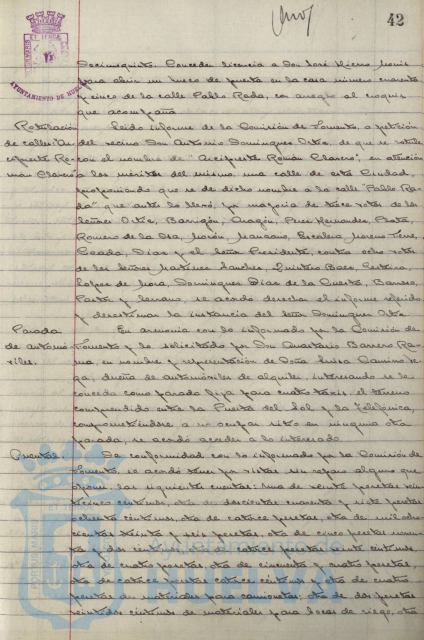 42
AYUNTAMIENTO DE HUELVA
Decimoquinto. Conceder licencia a Don José Hierro
para abrir un hueco de puerta en la casa número cuarenta
y cinco de la calle Pablo Rada, con arreglo al croquis
que acompaña
Rotulación
Leido informe de la Comisión de Fomento, a petición
de calles: "Ar
del vecino Don Antonio Dominguez Ortiz, de que se rotule
cipreste Ro-
con el nombre de "Arcipreste Román Clavero", en atención
mán Clavero"
a los méritos del mismo, una calle de esta Ciudad,
proponiendo que se dé dicho nombre a la calle "Pablo Ra-
da" que antes lo llevó, por mayoría de trece votos de los
señores Ortiz, Barrigón, Aragón, Pérez Hernández,
Romero de la Osa, Morón, Manzano, Escalera, Moreno
Díaz y el señor Presidente, contra ocho votos
de los señores Martínez Sánchez, Quintero Báez,
López de Mora, Domínguez Díaz de la Cuesta, Barroso,
y Serrano, se acordó desechar el informe referido
y desestimar la instancia del señor Dominguez Ortiz
Parada
En armonía con lo informado por la Comisión de
de automó-
Fomento y lo solicitado por Don Barrero Ra-
viles.
en nombre y representación de Doña Luisa Camino
dueña de automóviles de alquiler, interesando se le
conceda como parada fija para cuatro taxis, el terreno
comprendido entre la Puerta del Sol y la Telefónica,
comprometiéndose a no ocupar sitio en ninguna otra
parada, se acordó acceder a lo interesado.
Cuentas.
De conformidad con lo informado por la Comisión de
Fomento, se acordó tener por vistas sin reparo alguno que
oponer, las siguientes cuentas: Una de veinte pesetas
céntimos, otra de doscientas cuarenta y siete pesetas
ochenta céntimos, otra de catorce pesetas, otra de mil ocho
cientas treinta y seis pesetas, otra de cinco pesetas noven
ta y dos céntimos, catorce pesetas veinte céntimos,
otra de cuatro pesetas, otra de cincuenta y cuatro pesetas,
otra de catorce pesetas catorce céntimos y otra de cuatro
pesetas de materiales para camionetas; otra de dos pesetas
veintidós céntimos de materiales para bocas de riego, otra